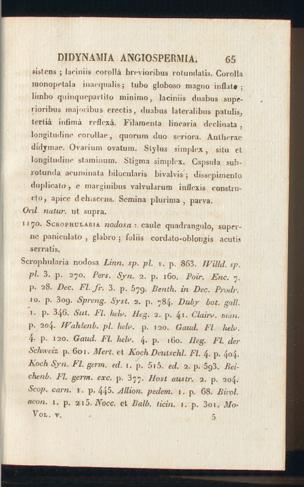 DIDYNAMIA ANGIOSPERMIA. 65
sistens ; laciniis corollâ brevioribus rotundatis. Corolla
monopetala inaequalis ; tubo globoso magno inflato ;
limbo quinquepartito minimo, laciniis duabus supe-
rioribus majoribus erectis, duabus lateralibus patulis,
tertiâ infimâ reflexâ. Filamenta linearia declinata ;
longitudine corollae, quorum duo seriora. Antherae
didymae. Ovarium ovatum. Stylus simplex, situ et
longitudine staminum. Stigma simplex. Capsula sub-
rotunda acuminata bilocularis bivalvis ; dissepimento
duplicato, e marginibus valvularum inflexis constru-
cto, apice dehiscens. Semina plurima, parva.
Ord. natur. ut supra.
1170. SCROPHULARIA nodosa : caule quadrangulo, super-
ne paniculato, glabro ; foliis cordato-oblongis acutis
serratis.
Scrophularia nodosa Linn. sp. pl. 1. p. 863. Willd. sp.
pl. 3. p. 270. Pers. Syn. 2. p. 160. Poir. Enc. 7.
p. 28. Dec. Fl. fr. 3. p. 579. Benth. in Dec. Prodr.
10. p. 309. Spreng. Syst. 2. p. 784. Duby bot. gall.
1. p. 346. Sut. Fl. helv. Heg. 2. p. 41. Clairv. man.
p. 204. Wahlenb. pl. helv. p. 120. Gaud. Fl. helv.
4. p. 120. Gaud. Fl. helv. 4. p. 160. Heg. Fl. der
Schweiz p. 601. Mert. et Koch Deutschl. Fl. 4. p. 404.
Koch Syn. Fl. germ. ed. 1. p. 515. ed. 2. p. 593. Rei-
chenb. Fl. germ. exc. p. 377. Host austr. 2. p. 204.
Scop. carn. 1. p. 445. Allion. pedem. 1. p. 68. Bivol.
acon. 1. p. 215. Nocc. et Balb. ticin. 1. p. 301. Mo-
VOL. V. 5